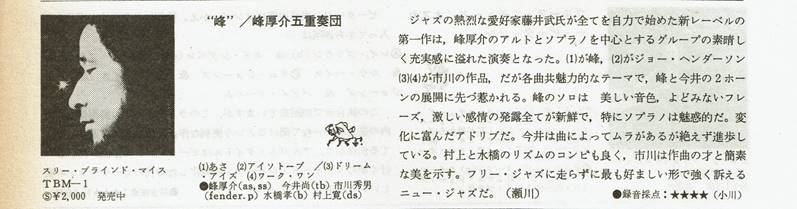 “峰”／峰厚介五重奏団
スリー・ブラインド・マイス
TBM—1
Ⓢ¥2,000 発売中
(1)あさ (2)アイソトープ ／(3)ドリーム
・アイズ (4)ワーク・ワン
●峰厚介(as,ss) 今井尚(tb) 市川秀男
(fender.p) 水橋孝(b) 村上寛(ds)
ジャズの熱烈な愛好家藤井武氏が全てを自力で始めた新レーベルの
第一作は，峰厚介のアルトとソプラノを中心とするグループの素晴し
く充実感に溢れた演奏となった。(1)が峰，(2)がジョー・ヘンダーソン
(3)(4)が市川の作品，だが各曲共魅力的なテーマで，峰と今井の2ホー
ンの展開に先づ惹かれる。峰のソロは 美しい音色，よどみないフレー
ズ，激しい感情の発露全てが新鮮で，特にソプラノは魅惑的だ。変
化に富んだアドリブだ。今井は曲によってムラがあるが絶えず進歩し
ている。村上と水橋のリズムのコンビも良く，市川は作曲の才と簡素
な美を示す。フリー・ジャズに走らずに最も好ましい形で強く訴える
ニュー・ジャズだ。（瀬川）
●録音採点：★★★★（小川）